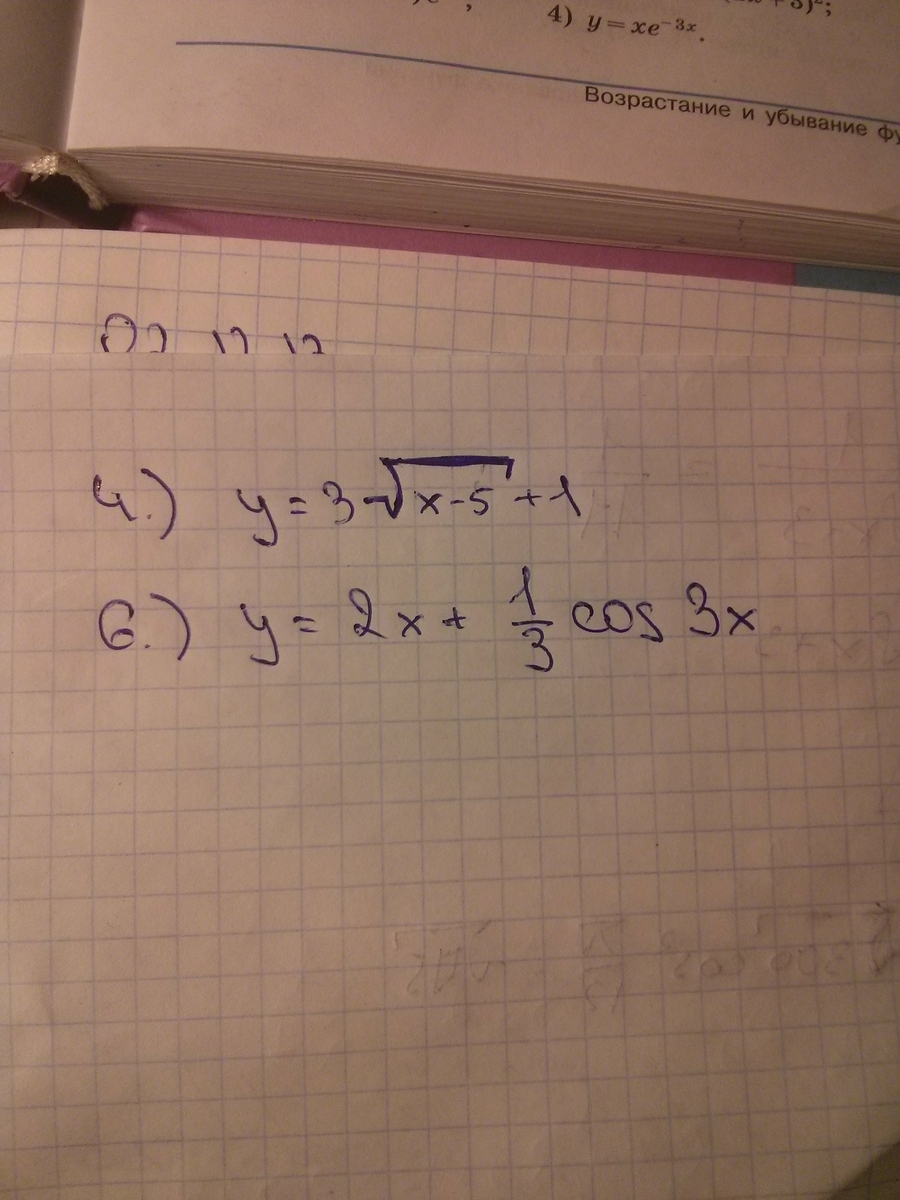 4) y=xe⁻³ˣ.
Возрастание и убывание
4.) y = 3√x-5 + 1
6.) y = 2x + 1/3 cos 3x